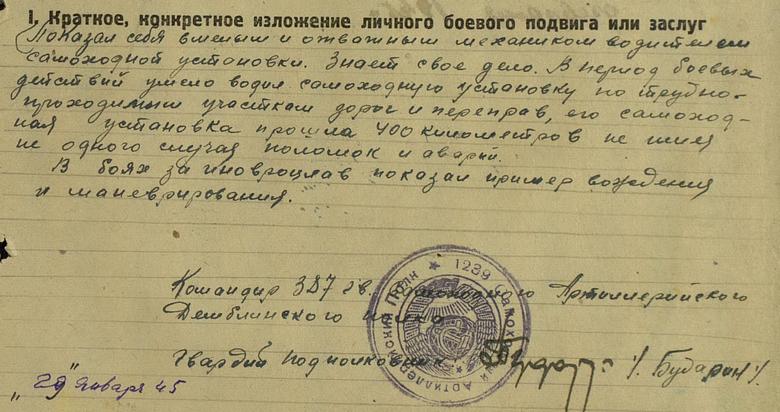 I. Краткое, конкретное изложение личного боевого подвига или заслуг
Показал себя смелым и отважным механиком водителем
самоходной установки. Знает свое дело. В период боевых
действий умело водил самоходную установку по трудно-
проходимым участкам дорог и переправ, его самоход-
ная установка прошла 400 километров не имея
не одного случая поломок и аварий.
В боях за Иновроцлав показал пример вождения
и маневрирования.
Командир 387 гв. Самоходного Артиллерийского
Демблинского полка
Гвардии Подполковник /. Бударин /.
"29" Января 45
1239 САМОХОДНЫЙ АРТИЛЛЕРИЙСКИЙ ПОЛК